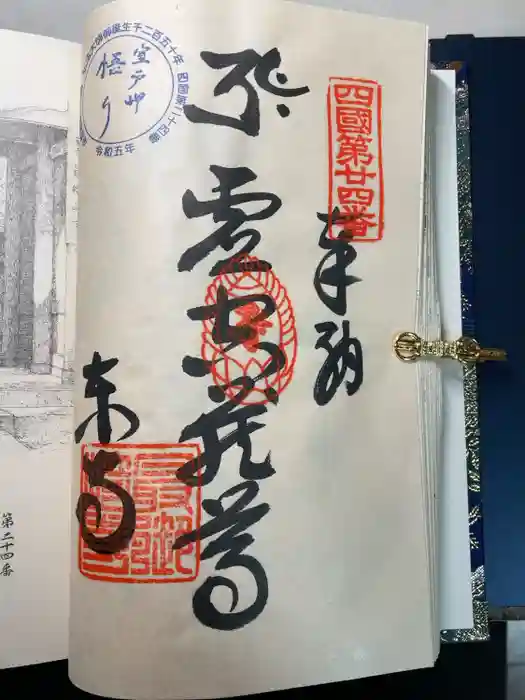 四國第廿四番
奉納
虚空蔵尊
東寺
大師御誕生千二百五十年
四国第二十四番
令和五年
室戸岬
悟り
第二十四番